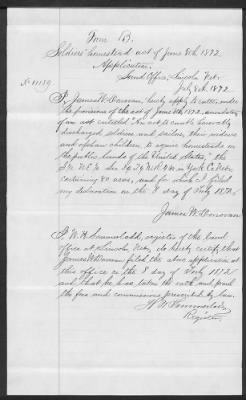 Form B.
Soldiers' homestead act of June 8th, 1872
Application.
Land Office, Lincoln Neb.
July 8th, 1872
I, James W. Donovan, hereby apply to enter, under
the provisions of the act of June 8th, 1872, amendatory
of an act entitled "An act to enable honorably
discharged soldiers and sailors, their widows
and orphan children, to acquire homesteads on
the public lands of the United States," the
containing 80 acres, and for which I filed
my declaration on the 8 day of July 1872.
James W. Donovan
I, register of the land
office at Lincoln Neb, do hereby certify that
James W. Donovan filed the above application at
this office on the 8 day of July 1872
and that he has taken the oath and paid
the fees and commissions prescribed by law.
Register